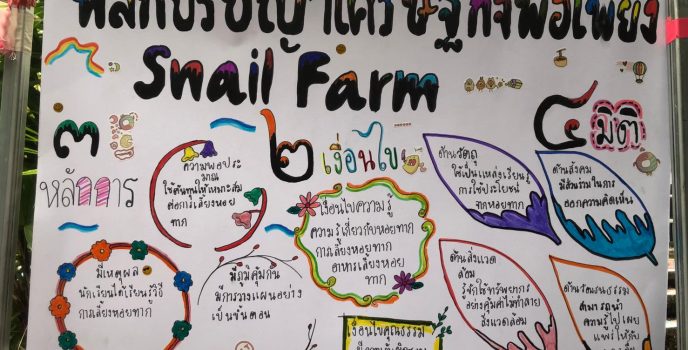 หลักปรัชญาเศรษฐกิจพอเพียง
Snail Farm
๓
หลักการ
ความพอประ
มาณ
ใช้ต้นทุนให้เหมาะสม
ต่อการเลี้ยงหอย
ทาก
มีเหตุผล
นักเรียนได้เรียนรู้วิธี
การเลี้ยงหอยทาก
มีภูมิคุ้มกัน
มีการวางแผนอย่าง
เป็นขั้นตอน
๒ เงื่อนไข
เงื่อนไขความรู้
ความรู้เกี่ยวกับหอยทาก
การเลี้ยงหอยทาก
อาหารเลี้ยงหอย
ทาก
เงื่อนไขคุณธรรม
๔ มิติ
ด้านวัตถุ
ใช้เป็นแหล่งเรียนรู้
การใช้ประโยชน์
จากหอยทาก
ด้านสังคม
มีส่วนร่วมในการ
ออกความคิดเห็น
ด้านสิ่งแวด
ล้อม
รู้จักใช้ทรัพยากร
อย่างคุ้มค่าไม่ทำลาย
สิ่งแวดล้อม
ด้านวัฒนธรรม
สามารถนำ
ความรู้ไปเผย
แพร่ให้กับ